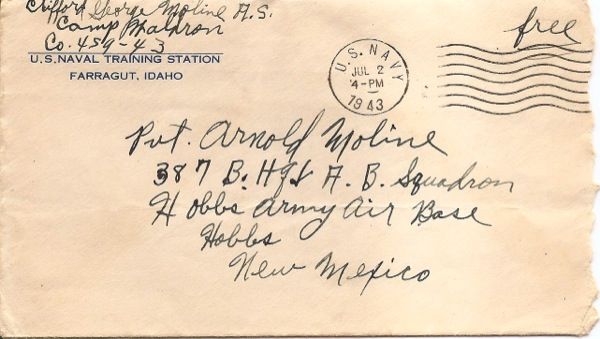 Clifford George Moline A.S.
Camp Waldron
Co. 459-43
U.S. NAVAL TRAINING STATION
FARRAGUT, IDAHO
U.S. NAVY
JUL 2
4-PM
1943
free
Pvt. Arnold Moline
387 B. Hq & A. B. Squadron
Hobbs Army Air Base
Hobbs
New Mexico